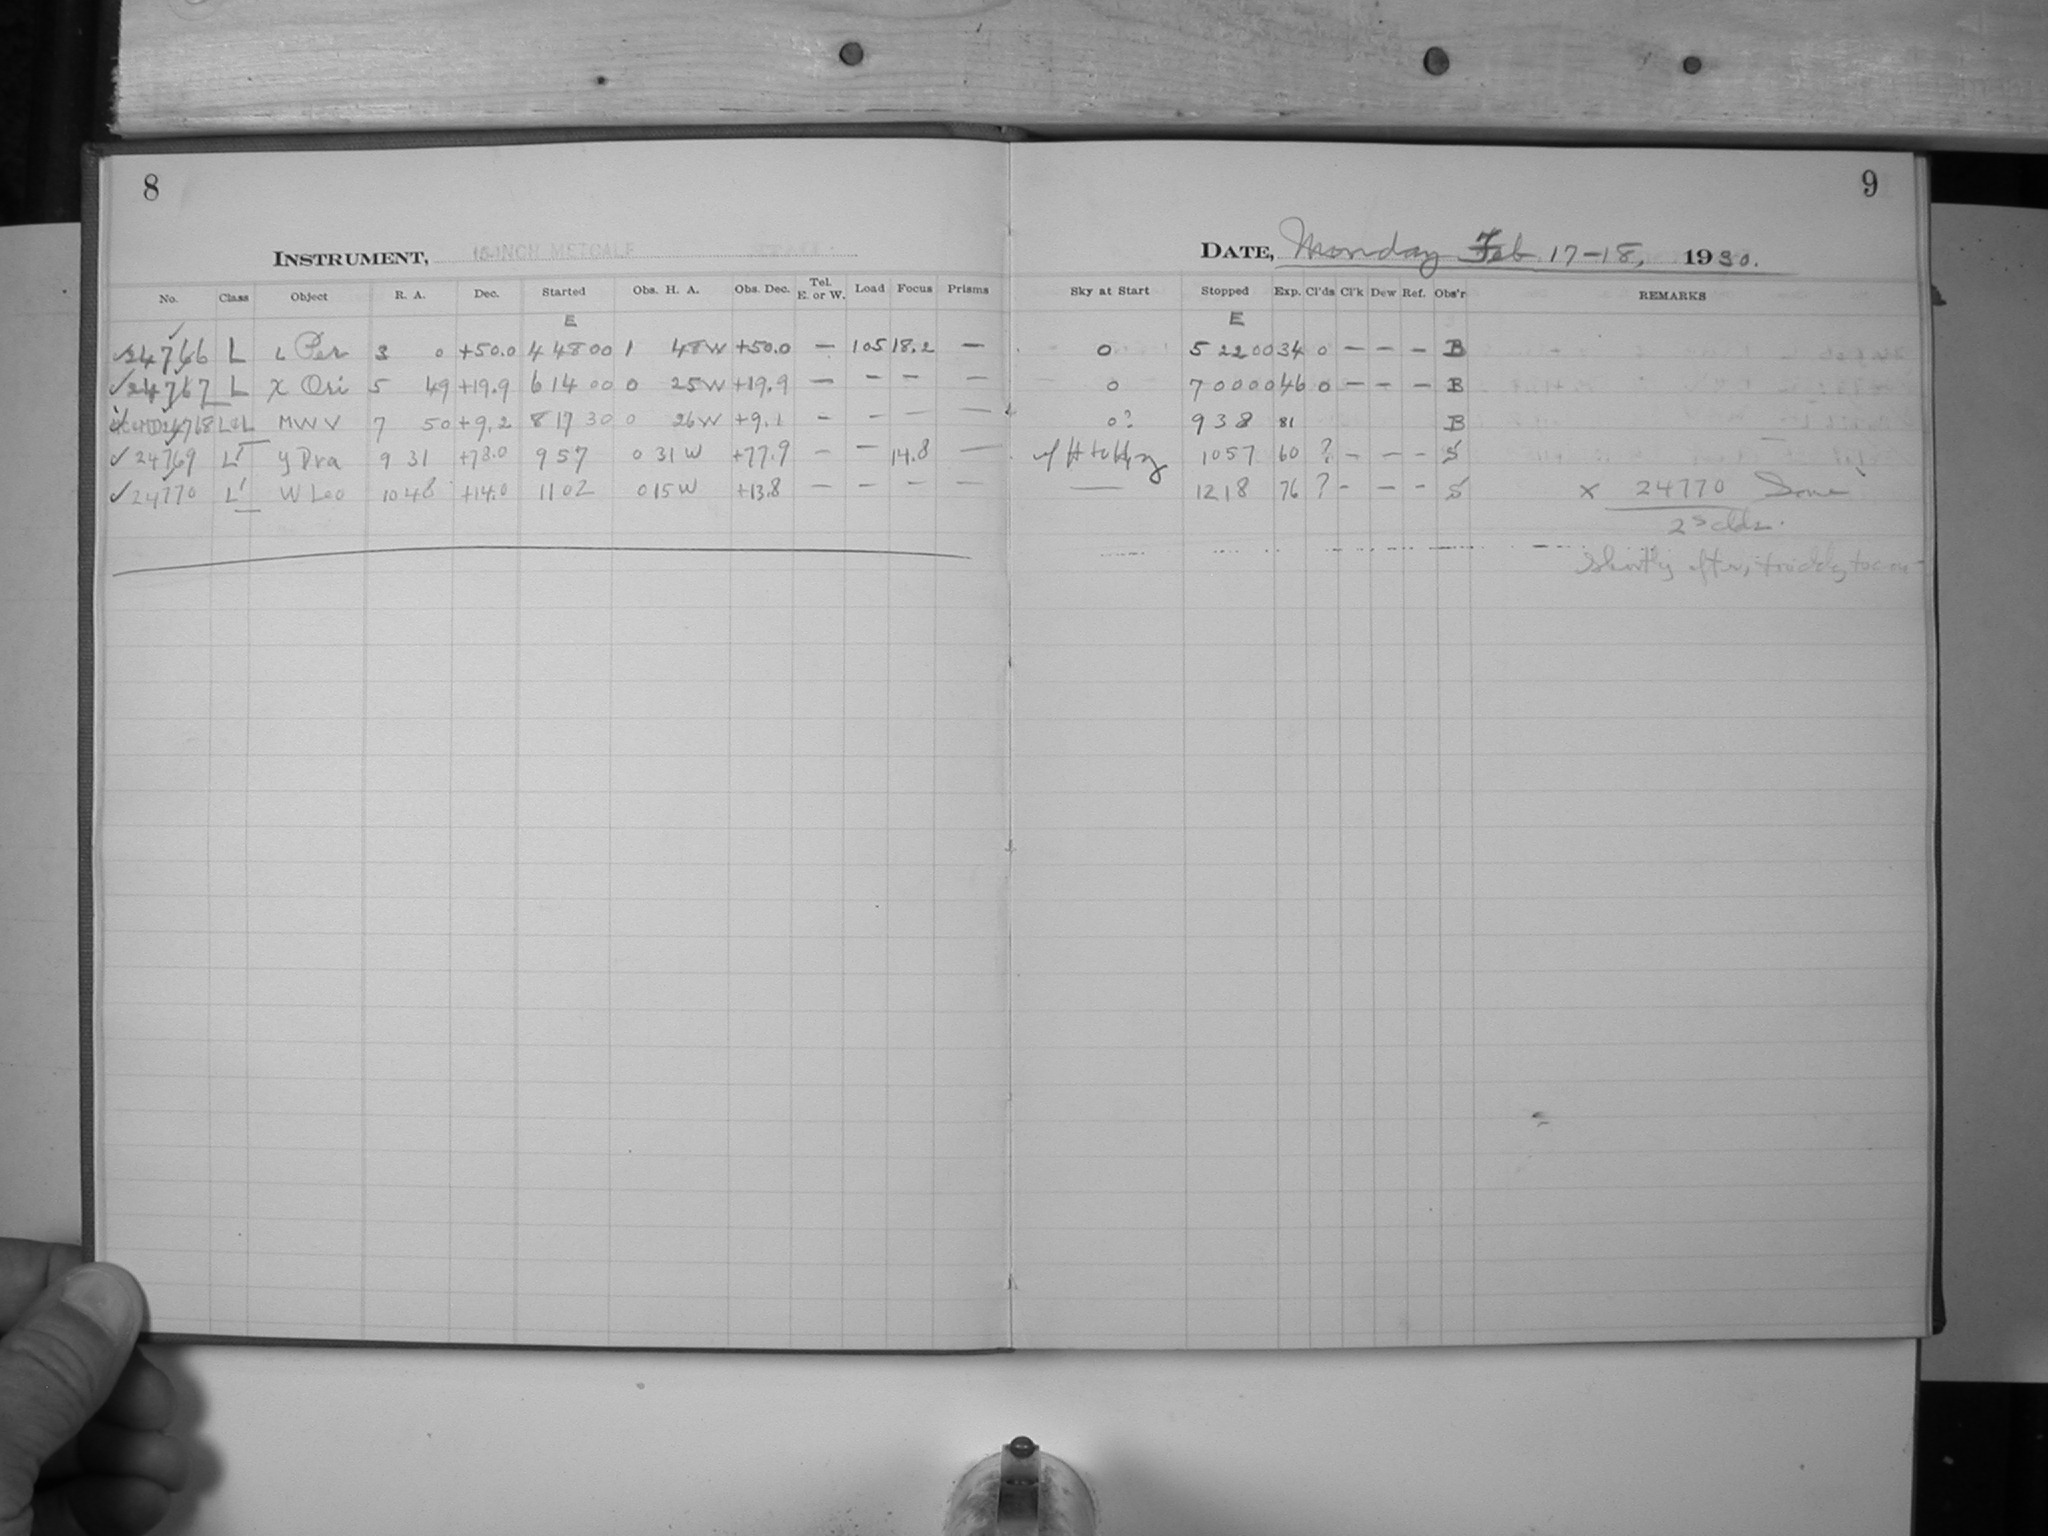 8
9
INSTRUMENT, 16-INCH METCALF
DATE, Monday Feb 17-18, 1930.
No. Class Object R. A. Dec. Started Obs. H. A. Obs. Dec. Tel. E. or W. Load Focus Prisms Sky at Start Stopped Exp. Cl'ds Cl'k Dew Ref. Obs'r REMARKS
E E
24766 L ι Per 3 0 +50.0 4 48 00 1 48 W +50.0 — 105 18.2 — 0 5 22 00 34 0 — — — B
24767 L χ Ori 5 49 +19.9 6 14 00 0 25 W +19.9 — — — — 0 7 00 00 46 0 — — — B
24768 MWV 7 50 +9.2 8 17 30 0 26 W +9.1 — — — — 0? 9 38 81 B
24769 L' y Dra 9 31 +78.0 9 57 0 31 W +77.9 — — 14.8 — 10 57 60 ? — — — S
24770 L' W Leo 10 48 +14.0 11 02 0 15 W +13.8 — — — — — 12 18 76 ? — — — S x 24770 Some
clds.
Shortly after, too cldy to con-